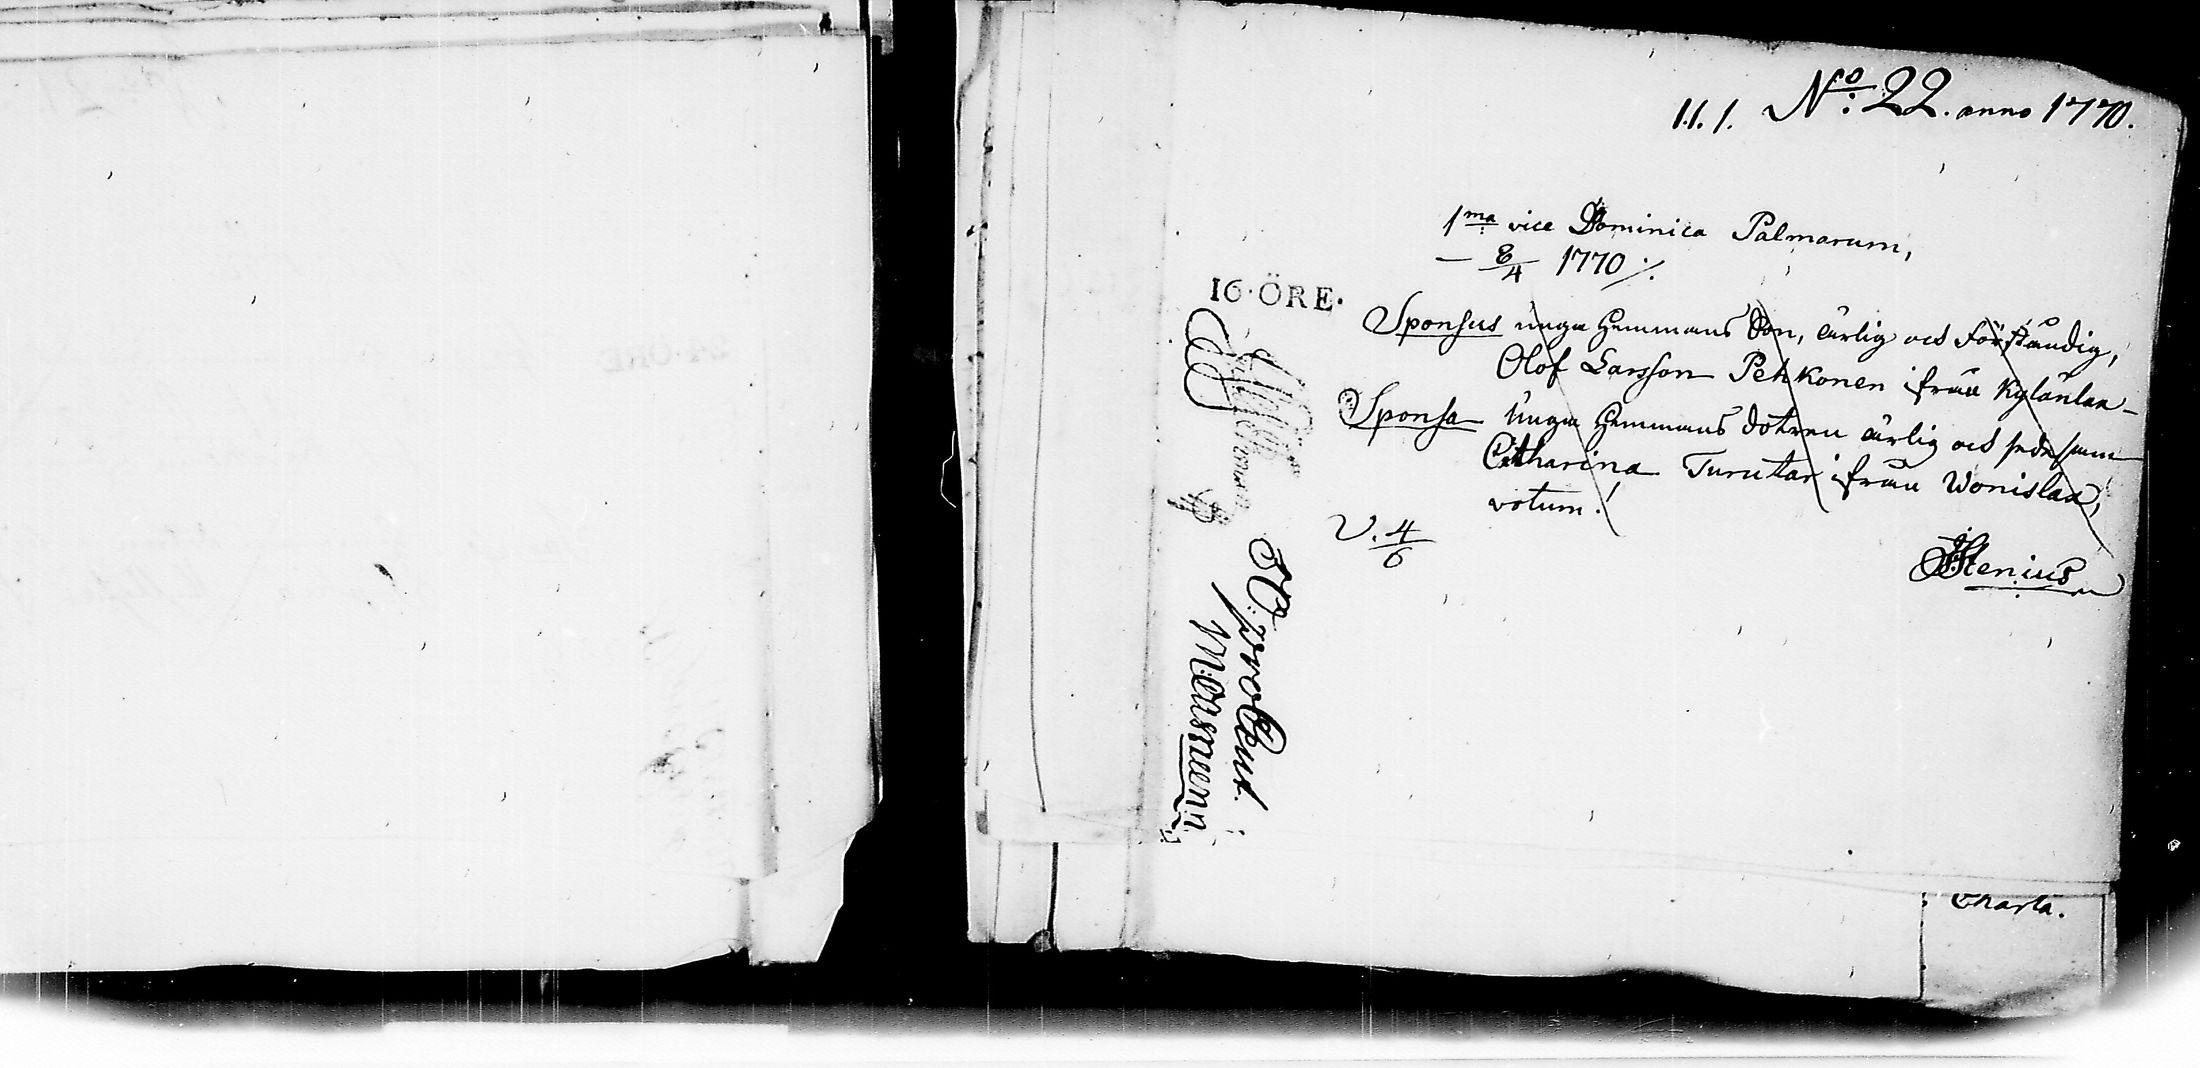 1.1.1. No: 22. anno 1770.
1ma vice Dominica Palmarum,
— 8/4 1770 ·/.
16·ÖRE.
Sponsus unga Hemmans Son, ärlig och förståndig,
Olof Larsson Pehkonen ifrån Kylänlax-
Sponsa Unga Hemmans dotren ärlig och sedesam
Catharina Turutar ifrån Wonislax,
votum!
V. 4/6
JStenius
pro Cent.
Charta.